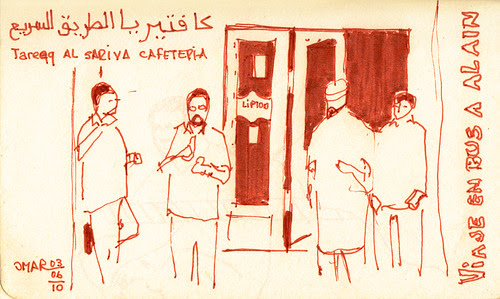 كافتيريا الطريق السريع
Tareqq AL SARIYA CAFETERIA
LIPTON
VIAJE EN BUS A ALAIN
OMAR 03
06
10